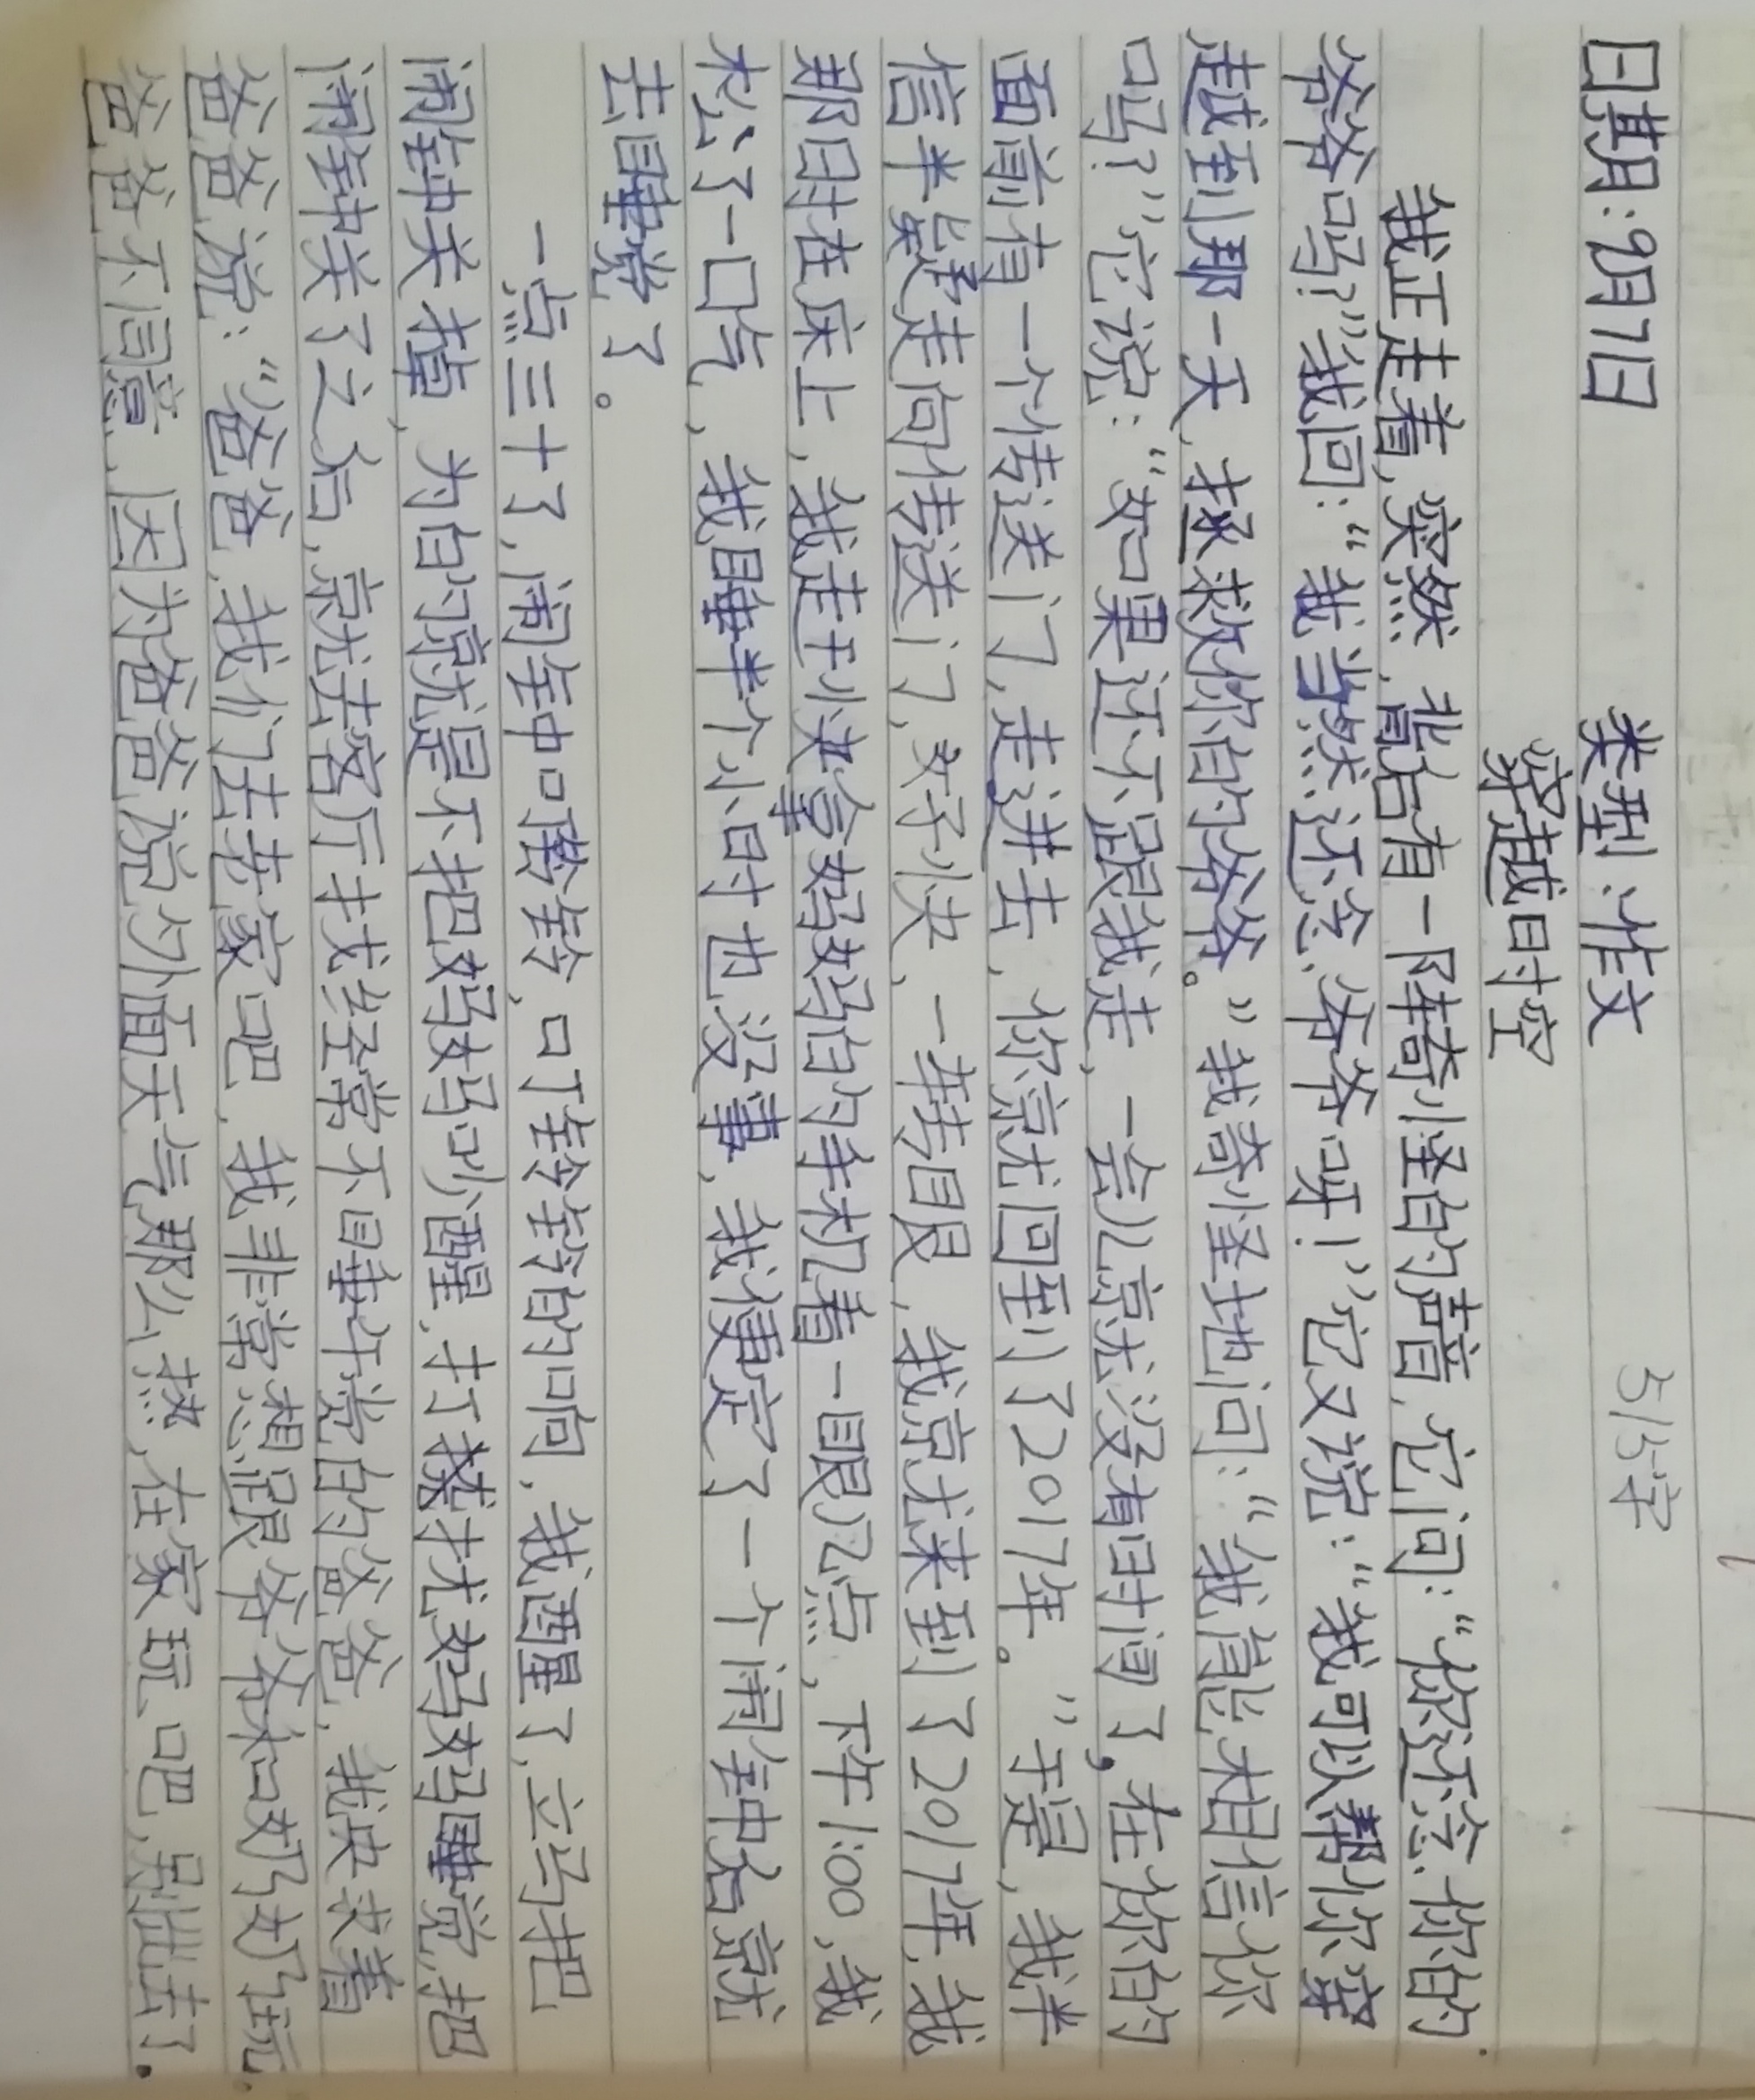 日期:9月7日 类型:作文 515字
穿越时空
我正走着,突然,背后有一阵奇怪的声音,它问:“你还念你的
爷爷吗?”我回:“我当然还念爷爷呀!”它又说:“我可以帮你穿
越到那一天,拯救你的爷爷。”我奇怪地问:“我能相信你
吗?”它说:“如果还不跟我走,一会儿就没有时间了,在你的
面前有一个传送门,走进去,你就回到了2017年。”于是,我半
信半疑走向传送门,好快,一转眼,我就来到了2017年,我
那时在床上,我走到头拿妈妈的手机看一眼几点,下午1:00,我
松了一口气,我睡半个小时也没事,我便定了一个闹钟后就
去睡觉了。
一点三十了,闹钟叮铃铃,叮铃铃的响,我醒了,立马把
闹钟关掉,为的就是不把妈妈吵醒,打扰妈妈睡觉,把
闹钟关了之后,就去客厅找经常不睡午觉的爸爸,我央求着
爸爸说:“爸爸,我们去老家吧,我非常想跟爷爷和奶奶玩,
爸爸不同意,因为爸爸说外面天气那么热,在家玩吧,别出去了.